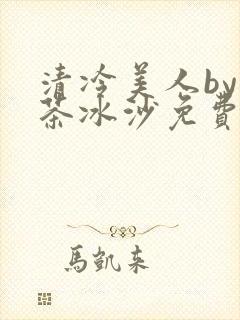 清冷美人by
茶冰沙免費
馬凱来